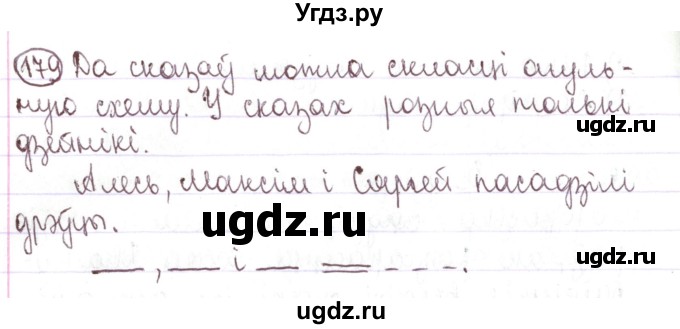 Угдз.ру
179 Да сказаў можна скласці агуль-
ную схему. У сказах розныя толькі
ugdz.ru
дзейнікі.
ugdz.ru
Алесь, Максім і Сяргей пасадзілі
ugdz.ru
дрэўцы.
ugdz.ru
, і .
ugdz.ru